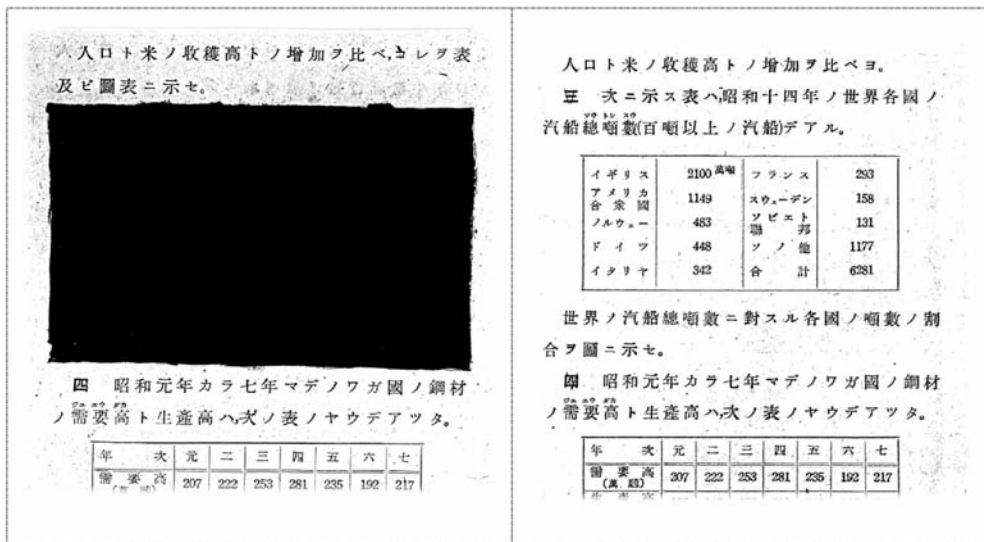 人口ト米ノ收穫高トノ增加ヲ比ベ,コレヲ表
及ビ圖表ニ示セ。
四 昭和元年カラ七年マデノワガ國ノ鋼材
ノ需要高ト生產高ハ,次ノ表ノヤウデアツタ。
年 次 元 二 三 四 五 六 七
需要高 207 222 253 281 235 192 217
人口ト米ノ收穫高トノ增加ヲ比ベヨ。
三 次ニ示ス表ハ,昭和十四年ノ世界各國ノ
汽船總噸數(百噸以上ノ汽船)デアル。
イギリス 2100萬噸 フランス 293
アメリカ合衆國 1149 スウェーデン 158
ノルウェー 483 ソビエト聯邦 131
ドイツ 448 ソノ他 1177
イタリヤ 342 合計 6281
世界ノ汽船總噸數ニ對スル各國ノ噸數ノ割
合ヲ圖ニ示セ。
四 昭和元年カラ七年マデノワガ國ノ鋼材
ノ需要高ト生產高ハ,次ノ表ノヤウデアツタ。
年 次 元 二 三 四 五 六 七
需要高(萬噸) 207 222 253 281 235 192 217